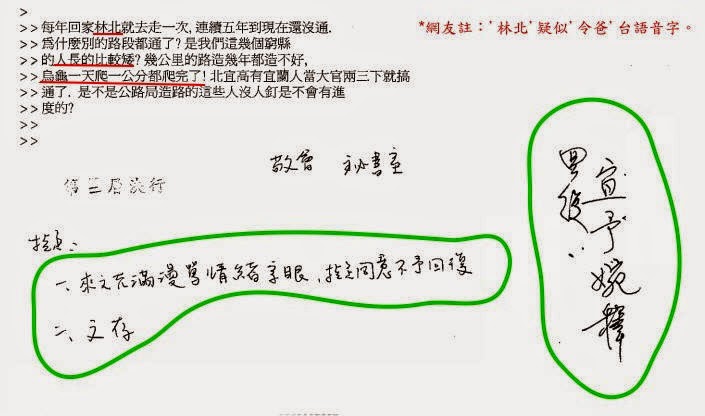 >
>> 每年回家林北就去走一次, 連續五年到現在還沒通.
>> 為什麼別的路段都通了? 是我們這幾個窮縣
>> 的人長的比較矮? 幾公里的路造幾年都造不好,
>> 烏龜一天爬一公分都爬完了! 北宜高有宜蘭人當大官兩三下就搞
>> 通了. 是不是公路局造路的這些人沒人釘是不會有進
>> 度的?
>>
>>
*網友註:'林北'疑似'令爸'台語音字。
敬會 祕書室
第三層決行
擬:
一、來文充滿謾罵情緒字眼、擬同意不予回復
二、文存
宜予婉釋